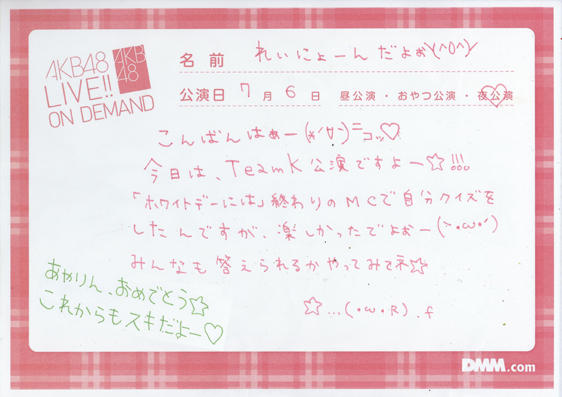 AKB48
LIVE!!
ON DEMAND
AKB
48
名前 れいにょーんだよぉ\(^O^)/
公演日 7月6日 昼公演・おやつ公演・夜公演
こんばんはぁー(*´∀`)ニコッ♡
今日は、TeamK公演ですよー☆!!!
「ホワイトデーには」終わりのMCで自分クイズを
したんですが、楽しかったでよぉー(`・ω・´)
みんなも答えられるかやってみてネ☆
☆...(・ω・R).f
あやりん、おめでとう☆
これからもスキだよー♡
DMM.com